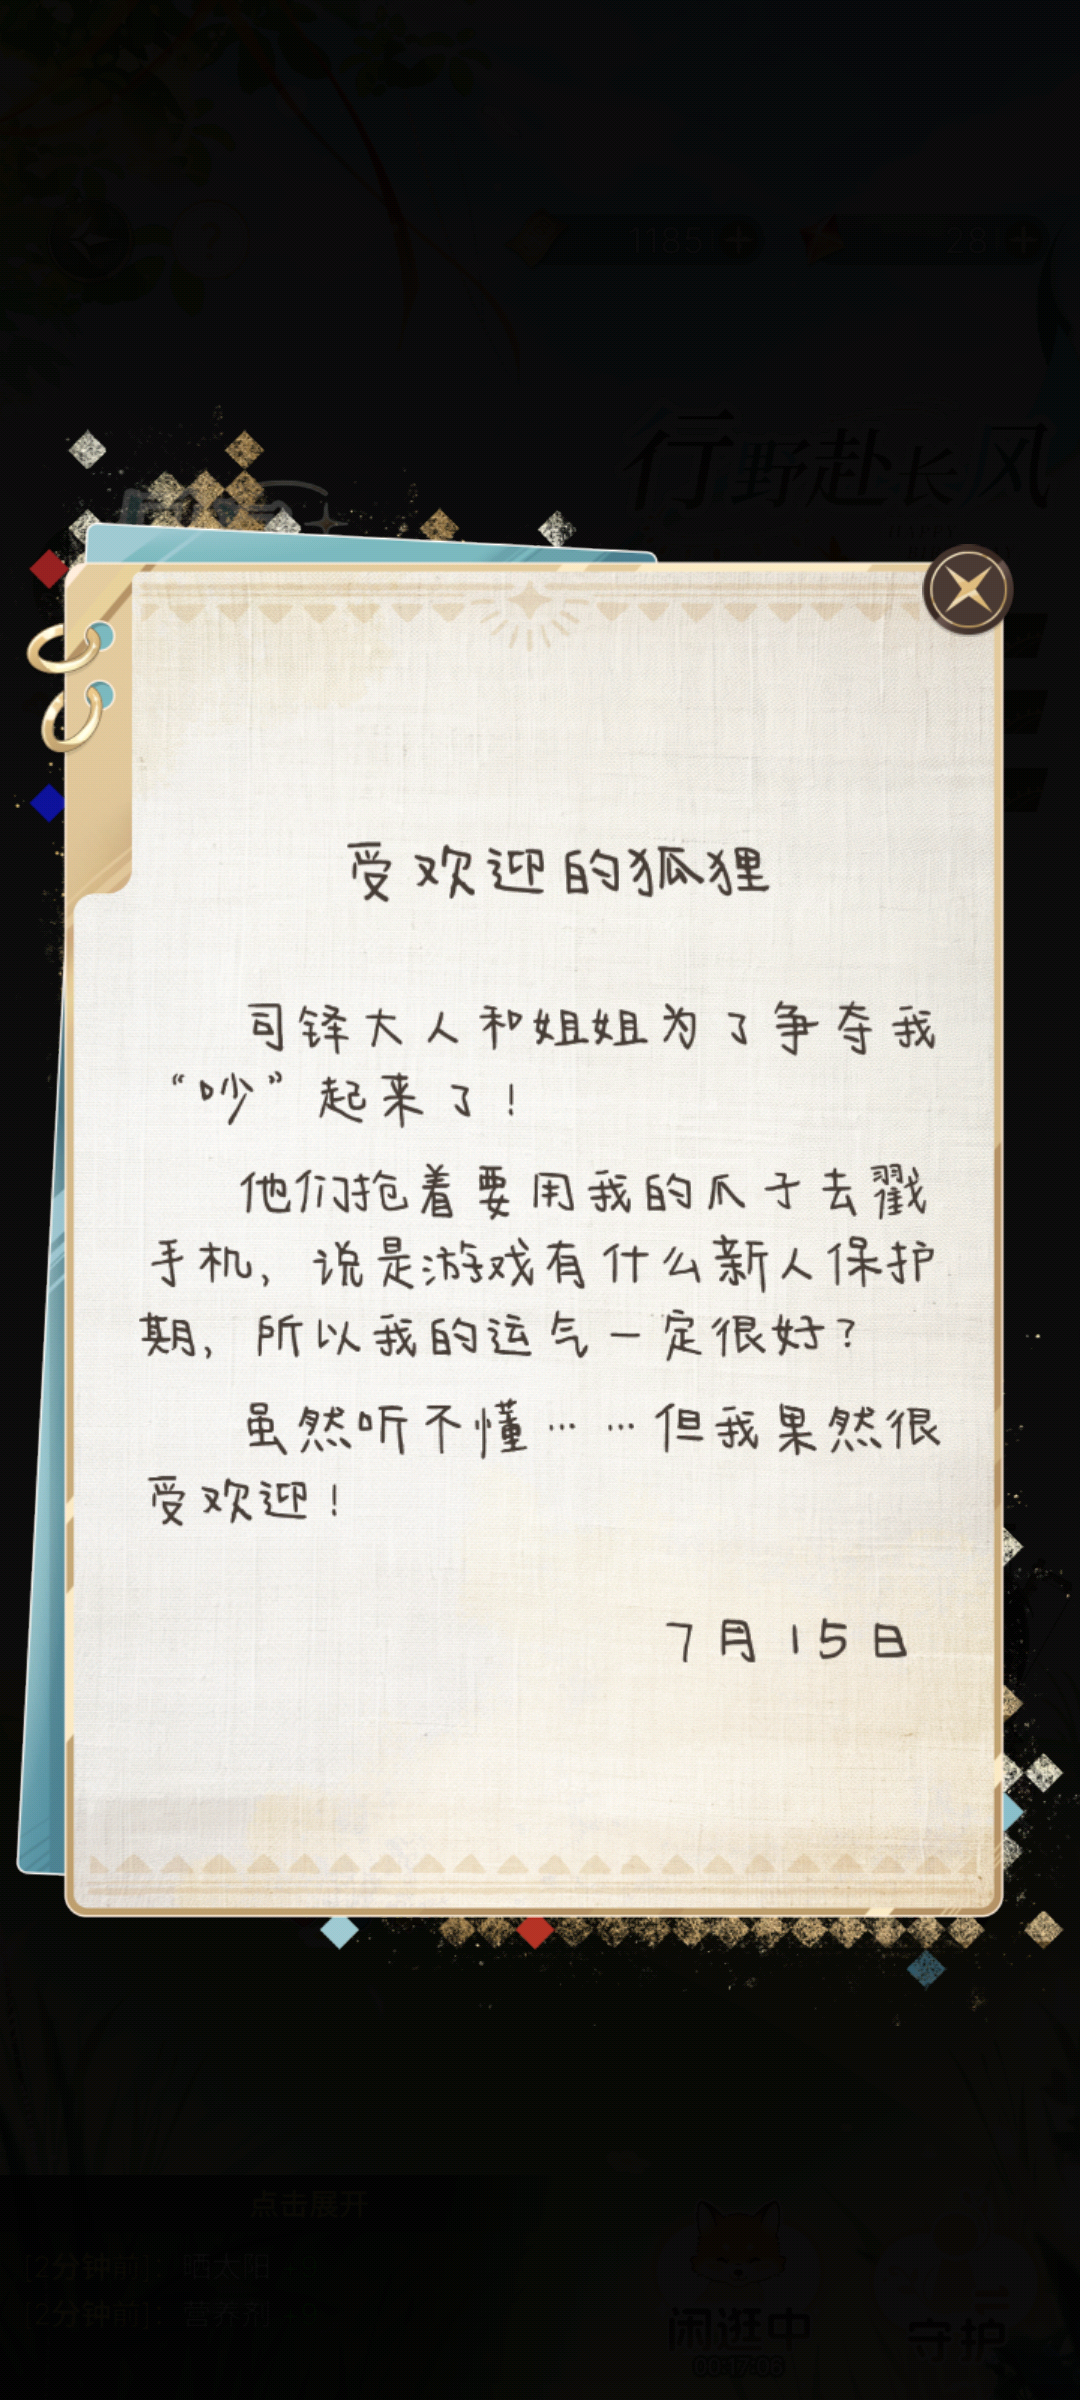 1185
28
行野赴长风
HAPPY
受欢迎的狐狸
司铎大人和姐姐为了争夺我
“吵”起来了！
他们抢着要用我的爪子去戳
手机，说是游戏有什么新人保护
期，所以我的运气一定很好？
虽然听不懂……但我果然很
受欢迎！
7月15日
点击展开
[2分钟前]：晒太阳 +9
[2分钟前]：营养剂 +9
闲逛中
守护
00:17:06